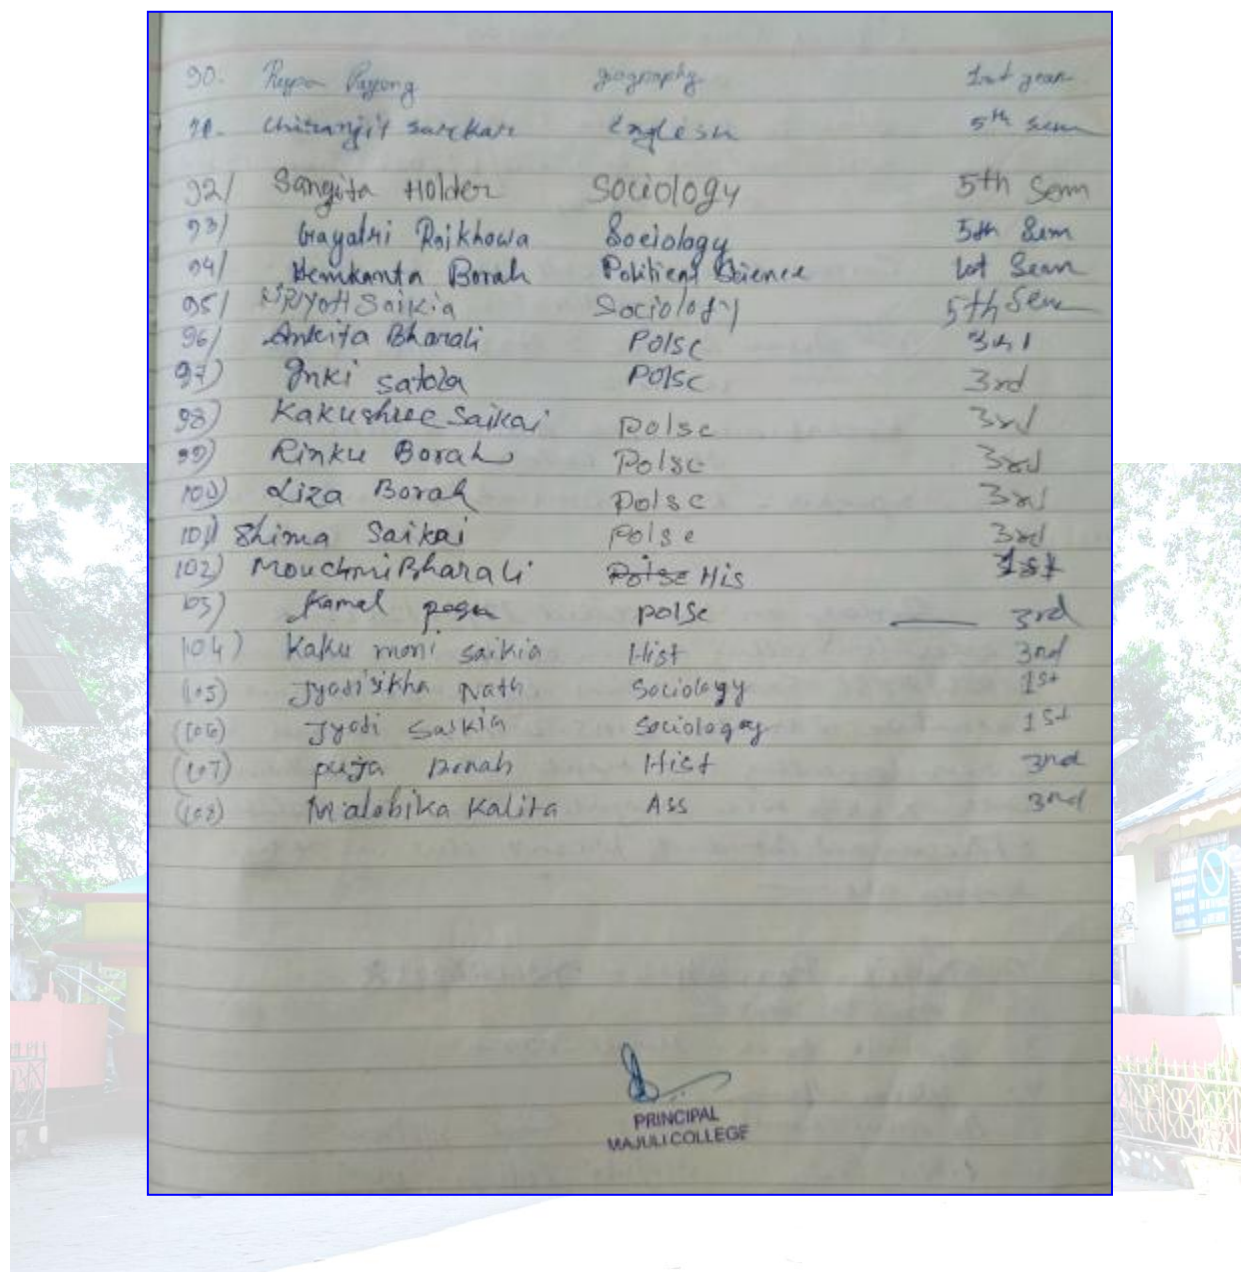 90. Rupa Payeng geography 1st year
91. Chiranjit sarkar English 5th sem
92/ Sangita Holder Sociology 5th Sem
93/ Gayatri Rajkhowa Sociology 5th Sem
94/ Hemkanta Borah Political Science 1st Sem
95/ Saikia Sociology 5th Sem
96/ Ankita Bharali Polsc 3rd
97) Inki satola Polsc 3rd
98) Kakushree Saikai Polsc 3rd
99) Rinku Borah Polsc 3rd
100) Liza Borah Polsc 3rd
101) Shima Saikai Polsc 3rd
102) Mouchmi Bharali Polsc His 1st
103) Kamal polsc — 3rd
104) Kaku moni saikia Hist 3rd
(105) Jyotisikha Nath Sociology 1st
(106) Jyoti Saikia Sociology 1st
(107) puja Hist 3rd
(108) Malabika Kalita Ass 3rd
PRINCIPAL
MAJULI COLLEGE